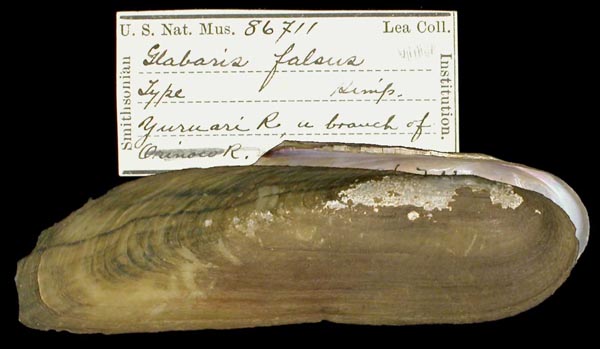 U. S. Nat. Mus. 86711 Lea Coll.
Smithsonian
Institution.
Glabaris falsus
Type Simp.
Yuruari R, a branch of
Orinoco R.